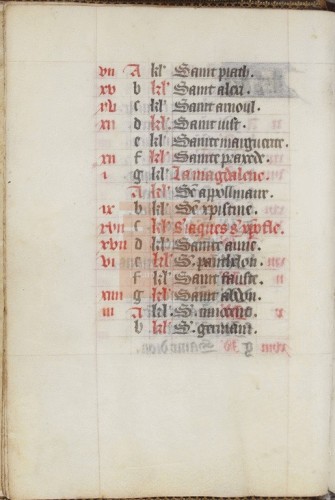 vii A kl' Saint piath.
xv b kl' Saint alexi.
iiii c kl' Saint arnoul.
xii d kl' Saint iust.
e kl' Sainte marguerite.
xii f kl' Sainte praxede.
i g kl' La magdalene.
A kl' S' appollinaire.
ix b kl' S' xpistine.
xvii c kl' S' iaques s' xpofle.
xvii d kl' Sainte anne.
vi e kl' S. panthelon.
f kl' Saint fauste.
xiiii g kl' Saint abdon.
iii A kl'. S.
b kl'. S. germain.